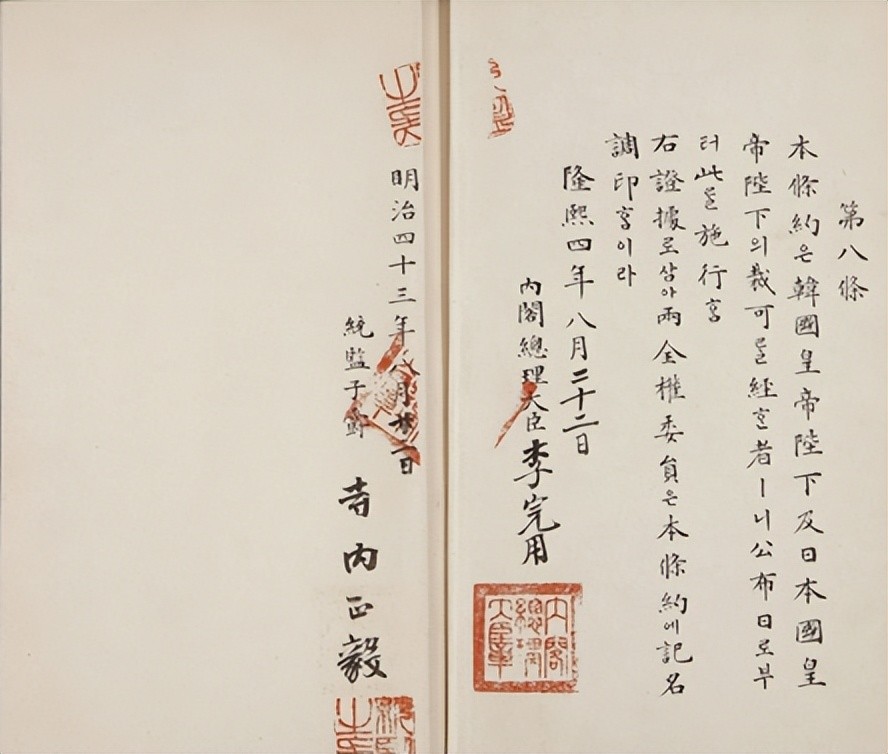 第八條
本條約은韓國皇帝陛下及日本國皇
帝陛下의裁可를經한者ㅣ니公布日로부
터此를施行홈
右證據로삼아兩全權委員은本條約에記名
調印홈이라
隆熙四年八月二十二日
內閣總理大臣李完用
內閣
總理
大臣章
明治四十三年八月 二日
統監子爵 寺內正毅